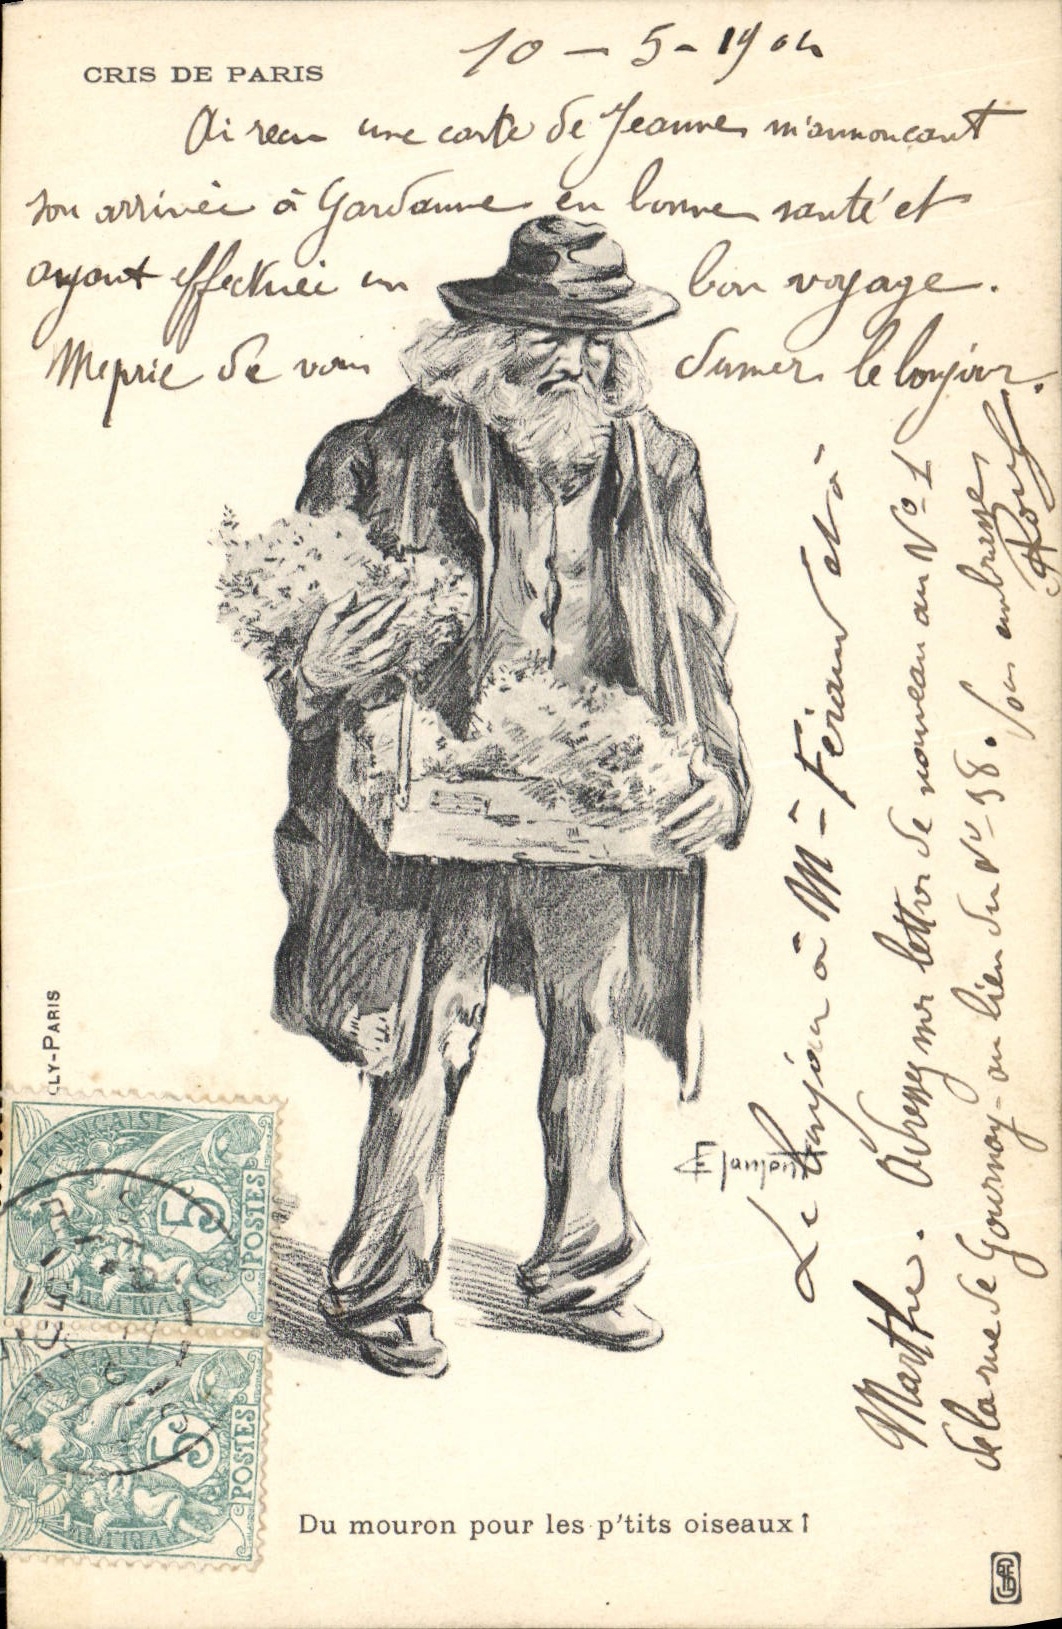 CRIS DE PARIS
10 - 5 - 1904
Ai recu une carte de Jeanne m'annoncant
son arrivée à Gardanne en bonne santé et
ayant effectuée un bon voyage.
Me prie de vous donner le bonjour.
Le bonjour à Mme Féraud et à
Marthe. Adressez mes lettres de nouveau au No 1
de la rue de Gournay - au lieu du No 58. Vous embrasse
CLY-PARIS
RÉPUBLIQUE FRANÇAISE
5
POSTES
RÉPUBLIQUE FRANÇAISE
5
POSTES
Du mouron pour les p'tits oiseaux !